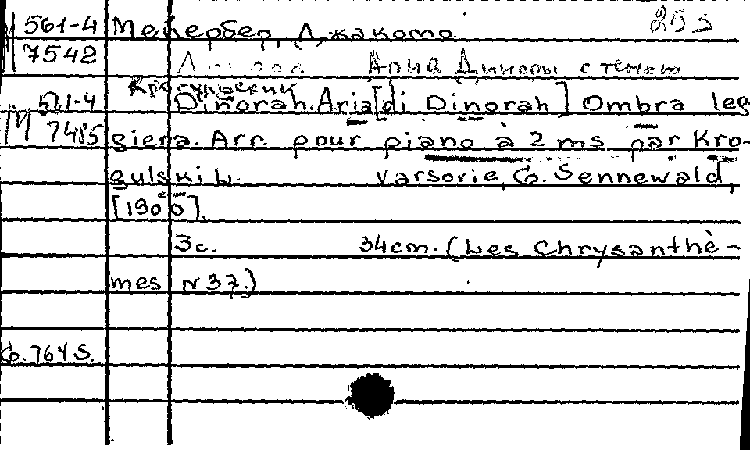 М 561-4 Мейербер, Джакомо 255
7542 Ария Диноры с тенью
Крогульский
511-4 Dinorah. Aria [di Dinorah] Ombra leg
М 7485 giera. Arr. pour piano à 2 ms par Kro-
gulski W. Varsovie, G. Sennewald,
[1900].
3c. 34cm. (Les Chrysanthè-
mes N 37.)
G. 764 S.